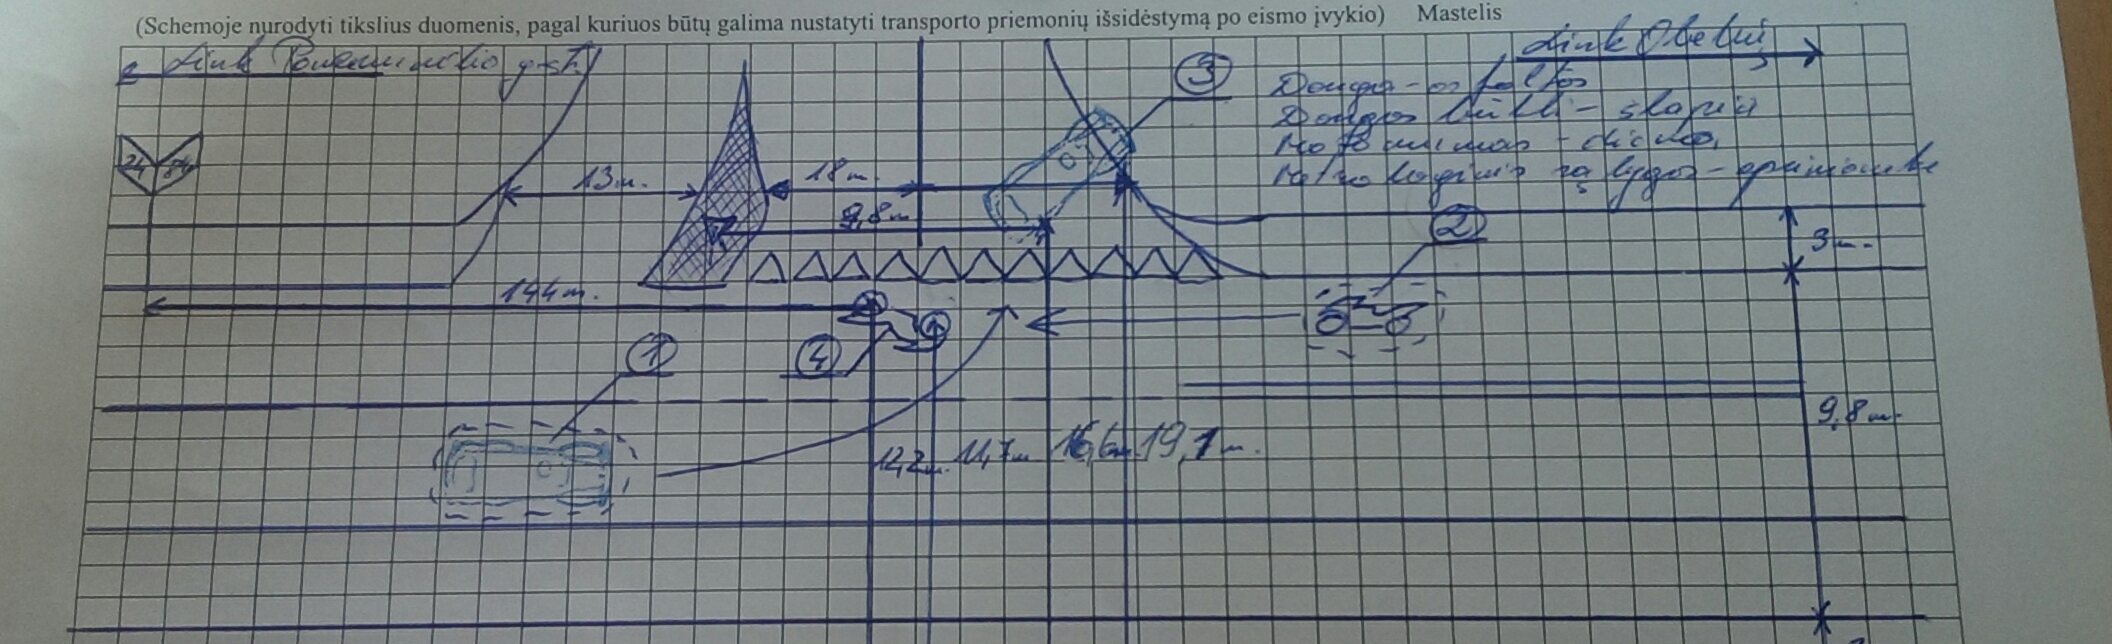 (Schemoje nurodyti tikslius duomenis, pagal kuriuos būtų galima nustatyti transporto priemonių išsidėstymą po eismo įvykio) Mastelis
Link
Link Obelių
3
Danga - asfaltas
Dangos būklė - šlapia
24 84
13 m.
18 m.
Matomumas -
9,8 m
2
3 m.
144 m.
1
4
9,8 m
12,2 m. 11,7 m 16,6 m 19,1 m.